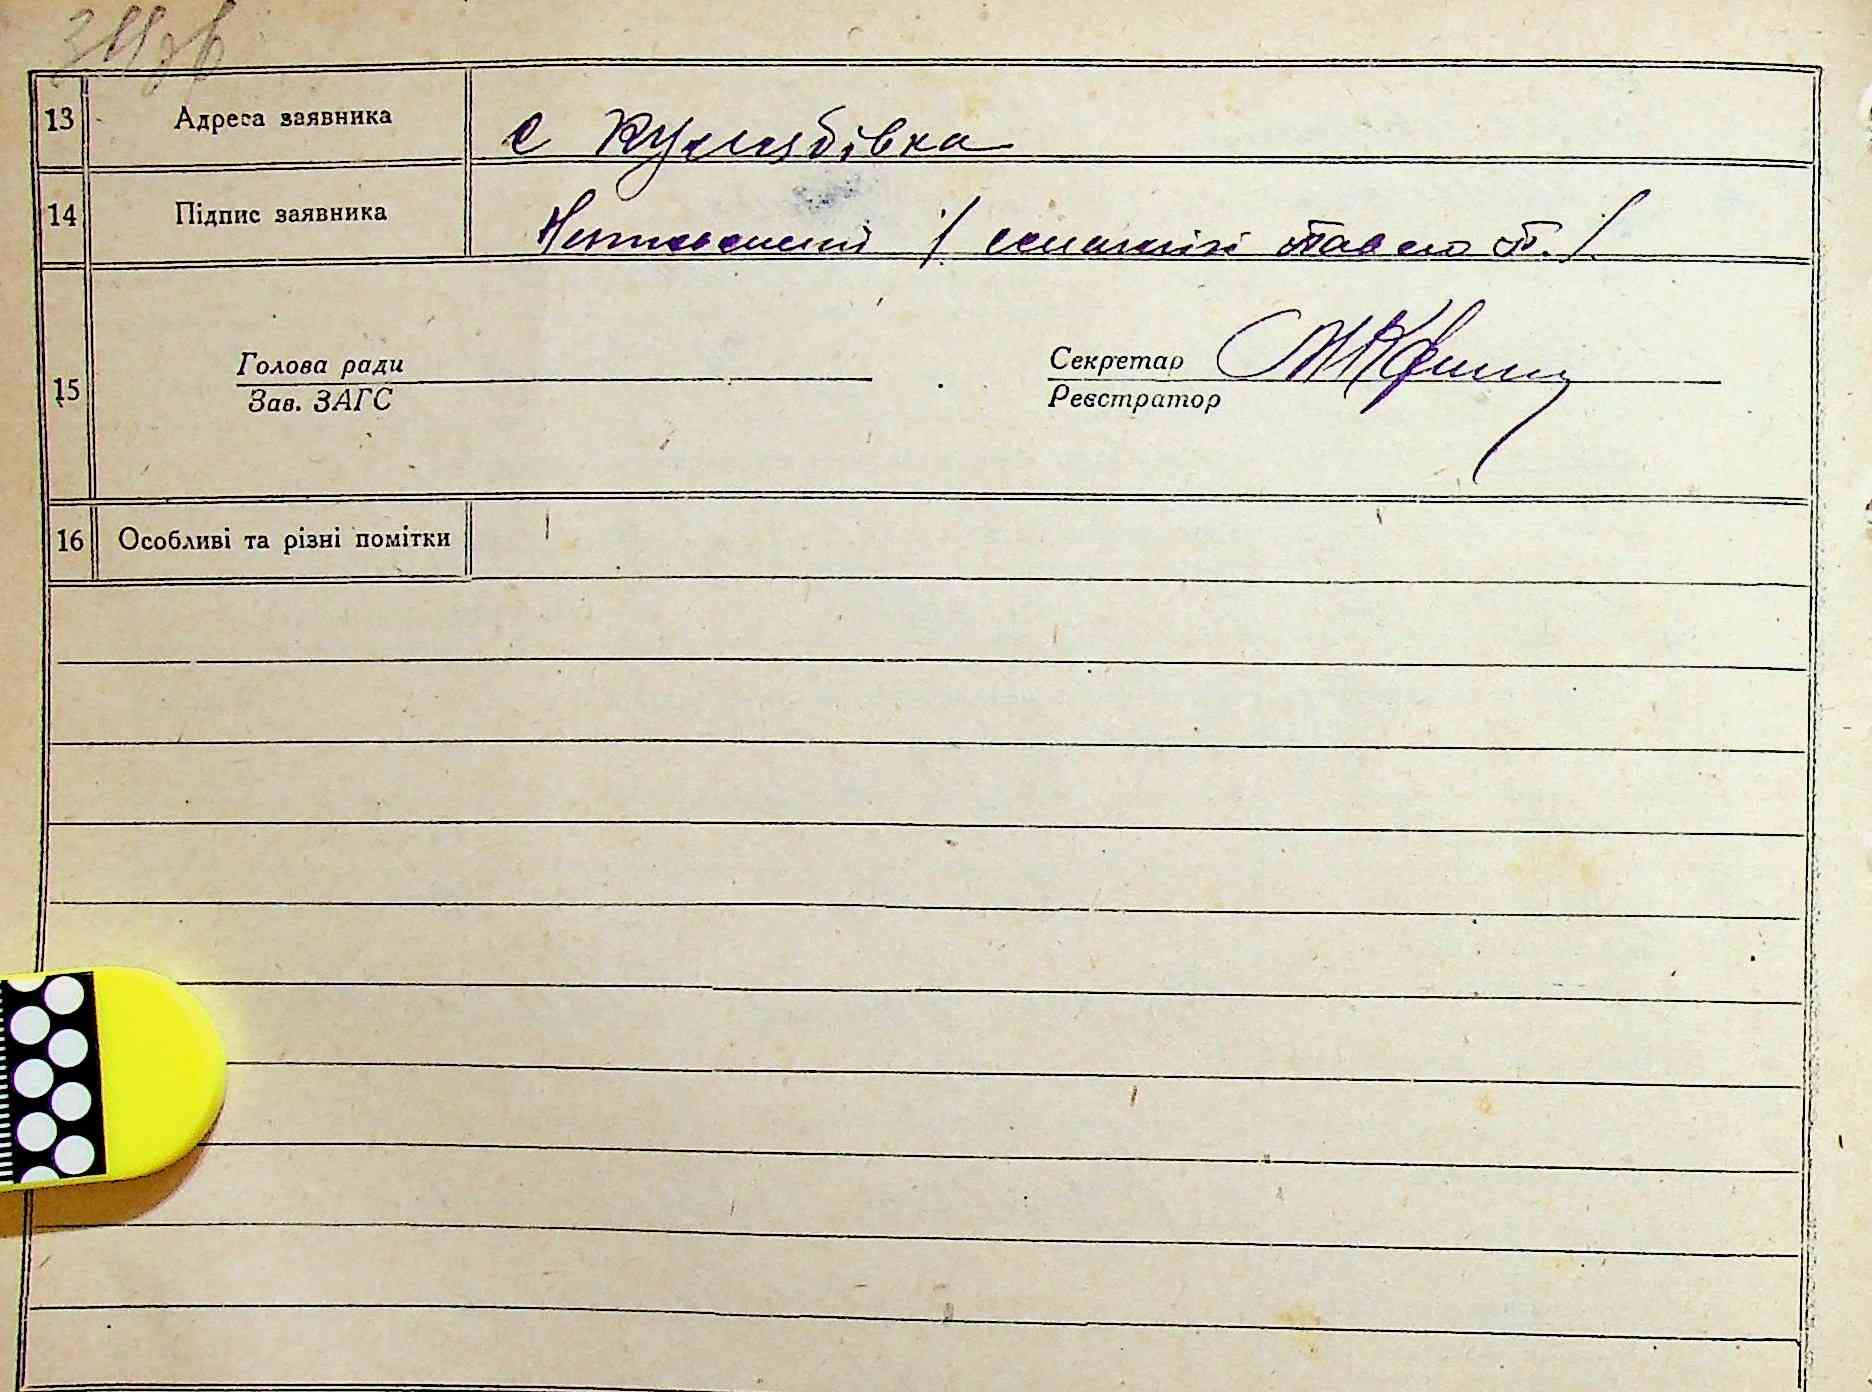 13 Адреса заявника с Кулябівка
14 Підпис заявника Неписьменний / Павло П. /
15
Голова ради Секретар
Зав. ЗАГС Реєстратор
16 Особливі та різні помітки